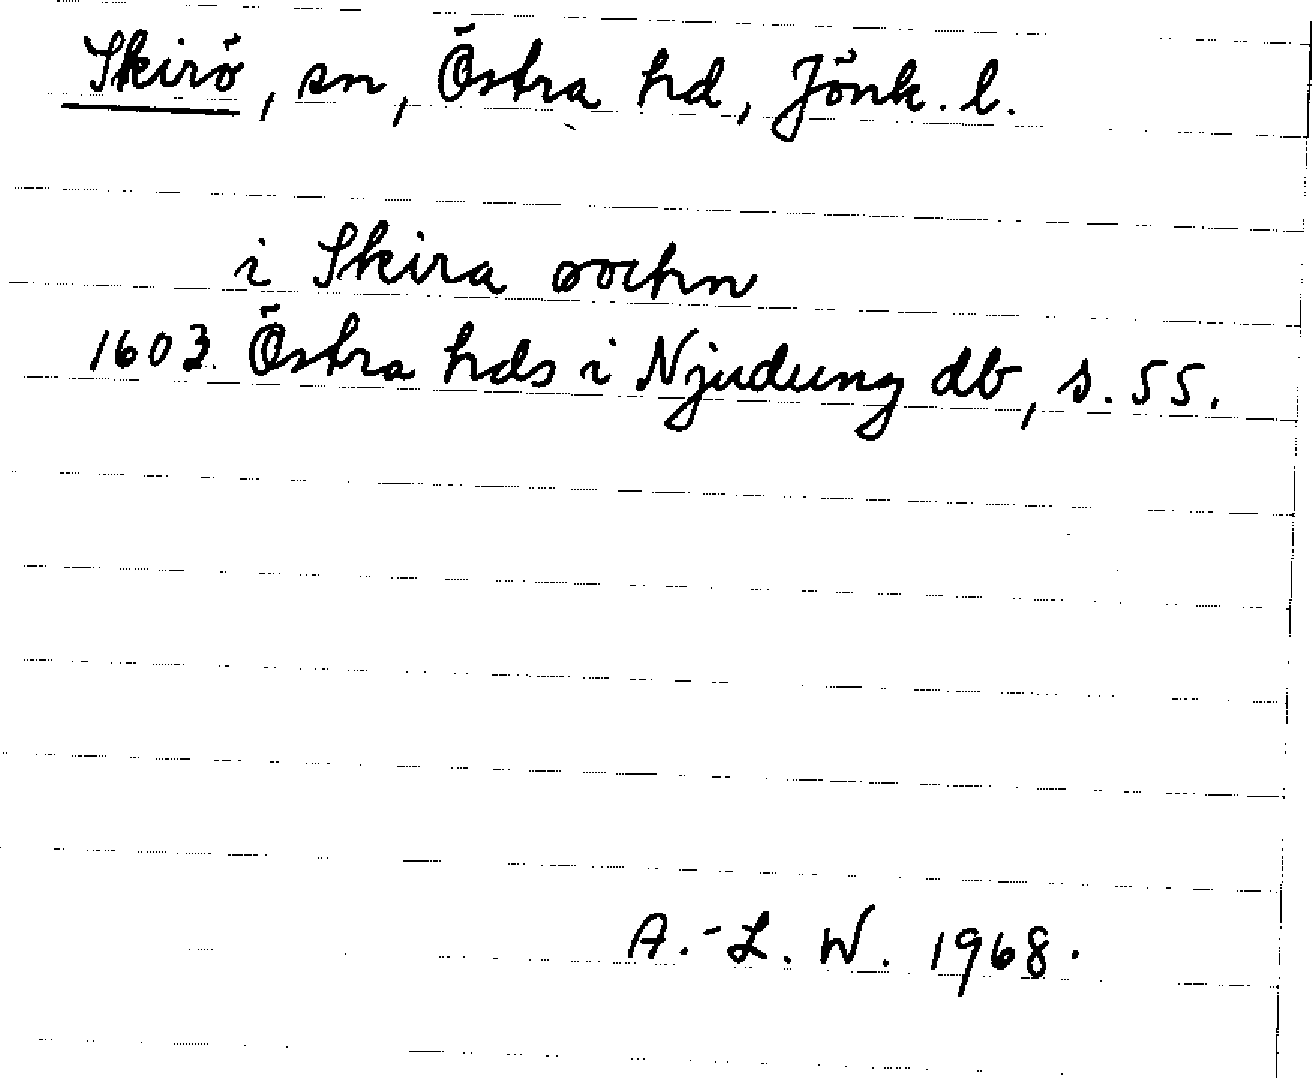 Skirö, sn, Östra hd, Jönk. l.
i Skira sochn
1603. Östra hds i Njudung db, s. 55.
A.-L. W. 1968.